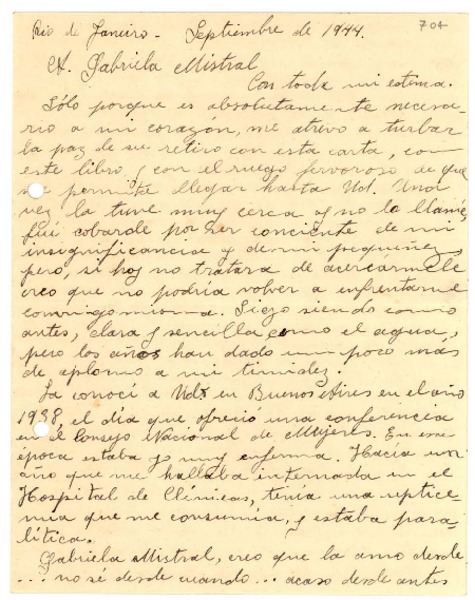 Rio de Janeiro - Septiembre de 1944. 704
A Gabriela Mistral
Con toda mi estima.
Sólo porque es absolutamente necesa-
rio a mi corazón, me atrevo a turbar
la paz de su retiro con esta carta, con
este libro y con el ruego fervoroso de que
me permite llegar hasta Ud. Una
vez, la tuve muy cerca y no la llamé,
fuí cobarde por ser conciente de mi
insignificancia y de mi pequeñez,
pero, si hoy no tratara de acercármele
creo que no podría volver a enfrentarme
conmigo misma. Sigo siendo como
antes, clara y sencilla como el agua,
pero los años han dado un poco más
de aplomo a mi timidez.
La conocí a Ud. en Buenos Aires en el año
1938, el día que ofreció una conferencia
en el Consejo Nacional de Mujeres. En esa
época estaba yo muy enferma. Hacía un
año que me hallaba internada en el
Hospital de Clínicas, tenía una septice-
mia que me consumía, y estaba para-
lítica.
Gabriela Mistral, creo que la amo desde
... no sé desde cuando... acaso desde antes